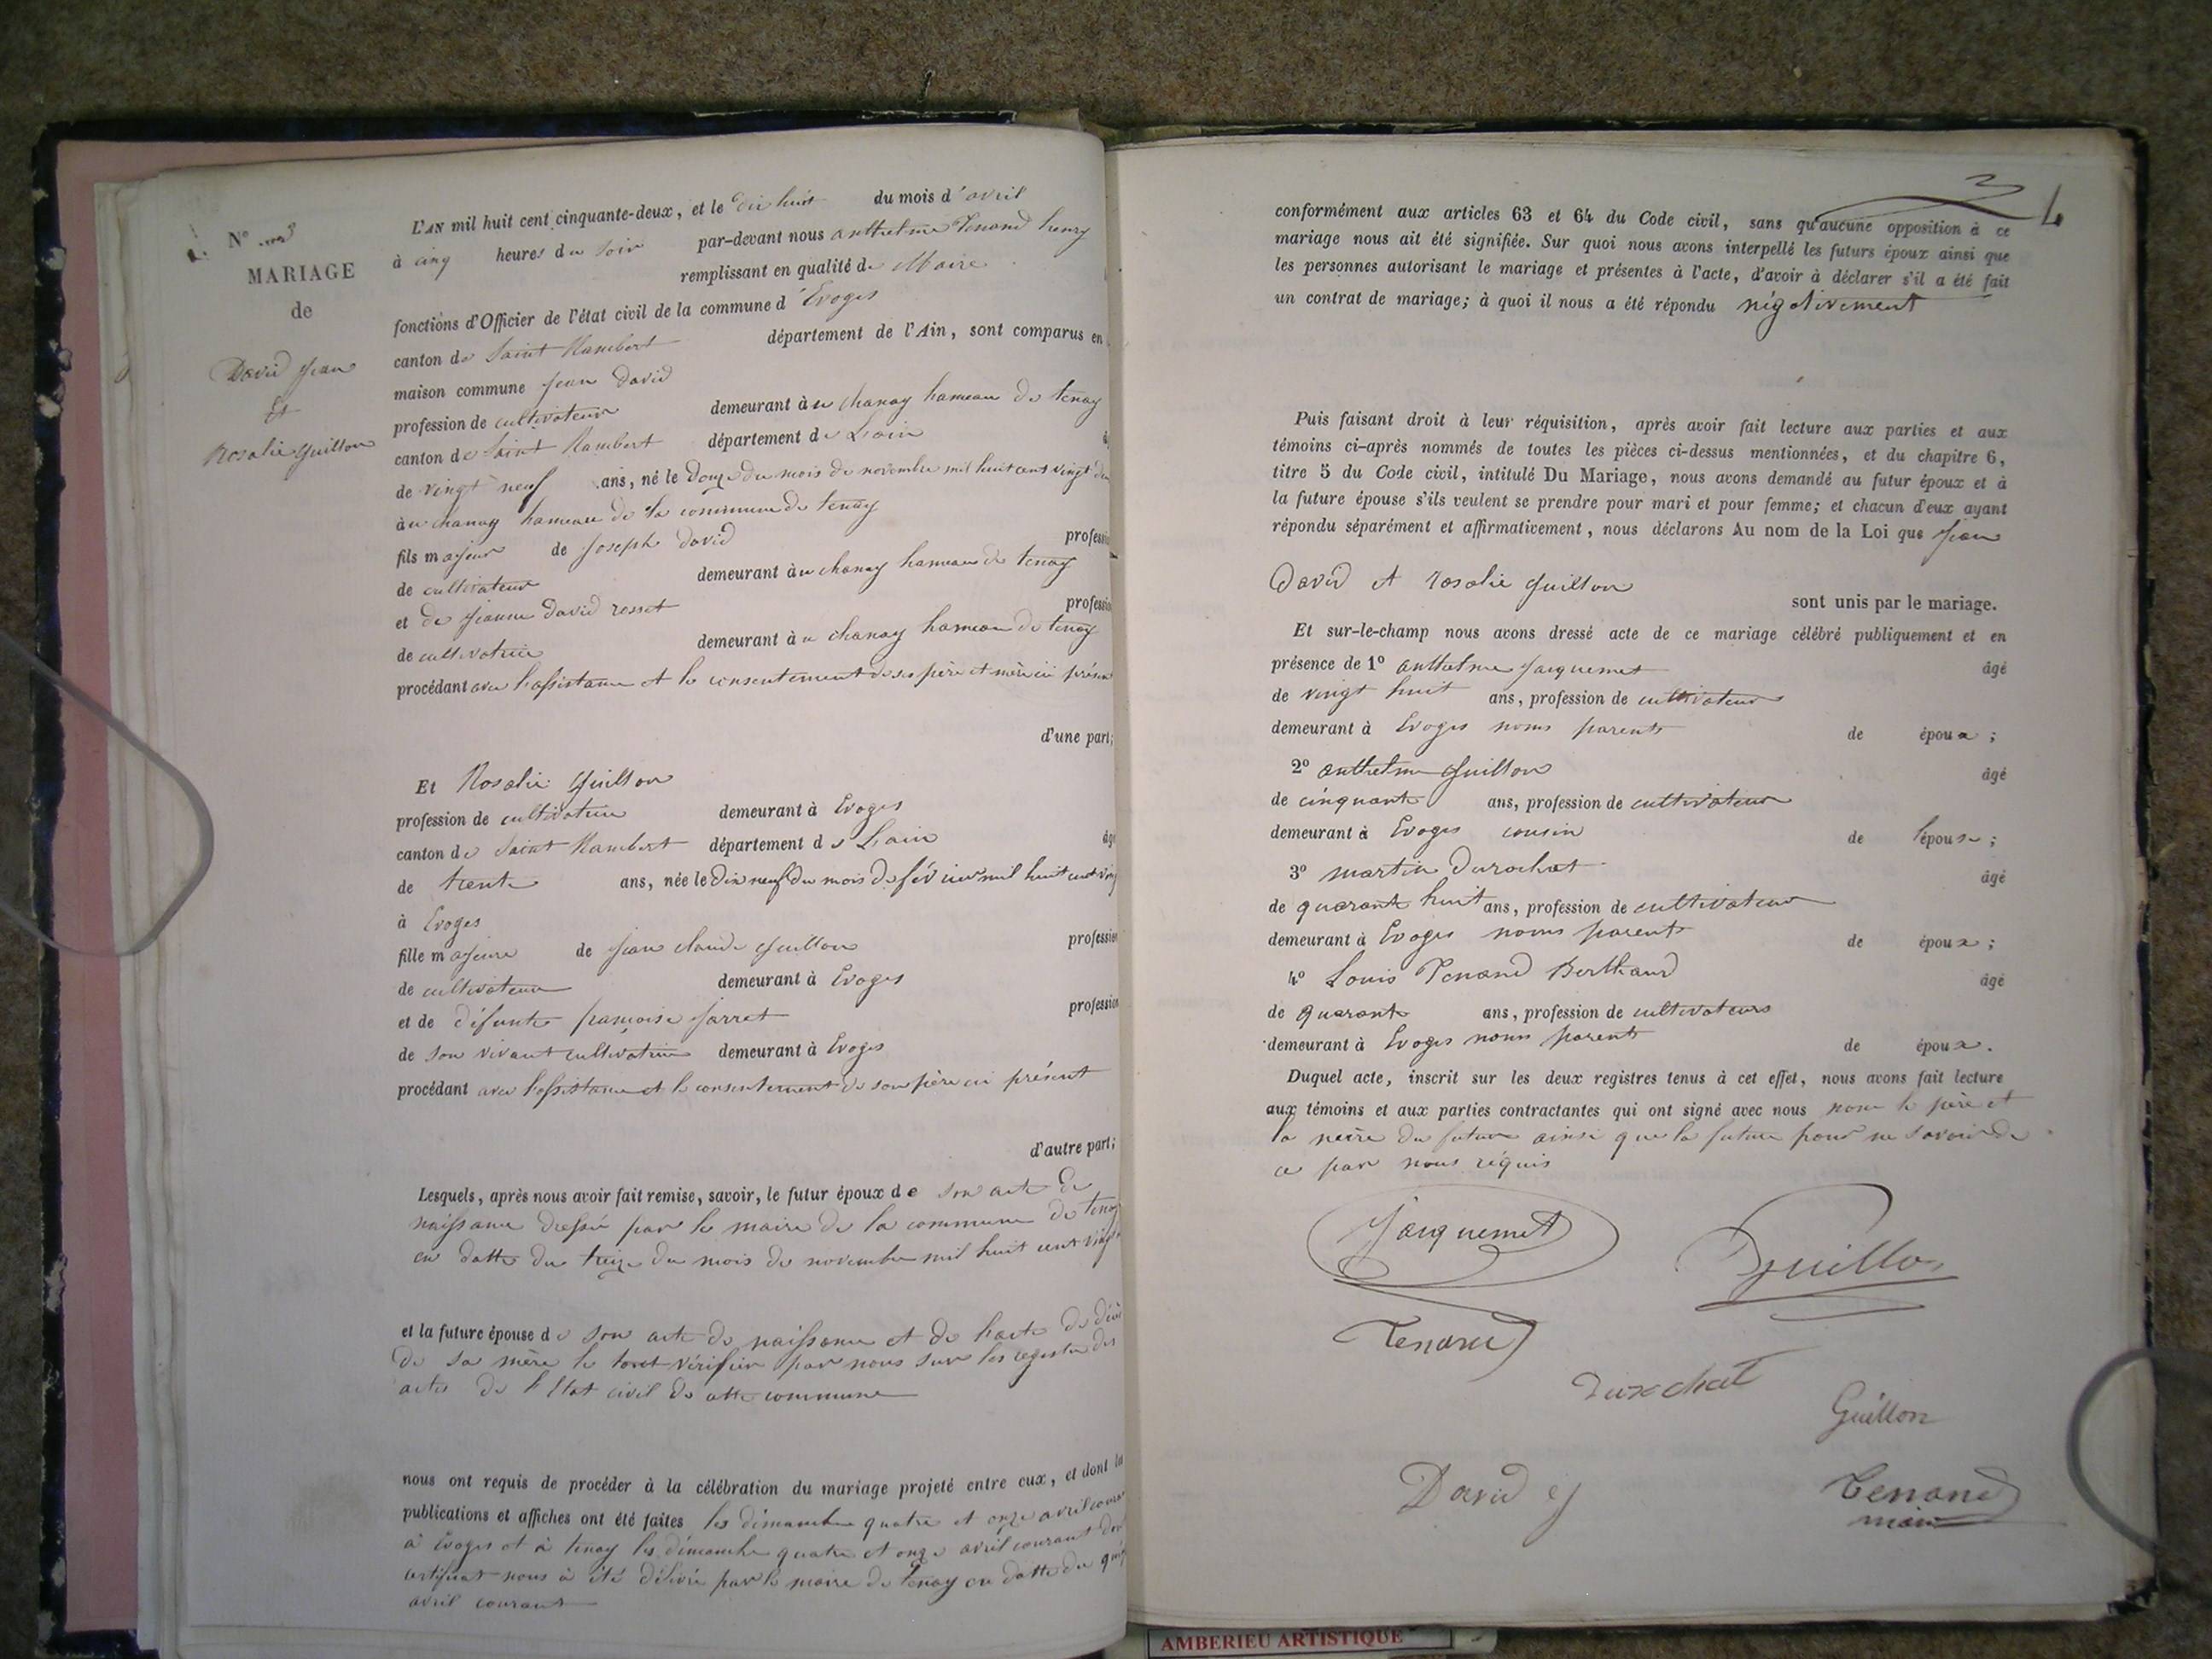 N° 3
MARIAGE
de
David Jean
Et
Rosalie Guillon
L'AN mil huit cent cinquante-deux, et le dix huit du mois d'avril
à cinq heures du soir par-devant nous anthelme Tenand henry
remplissant en qualité de Maire
fonctions d'Officier de l'état civil de la commune d'Evoges
canton de Saint Rambert département de l'Ain, sont comparus en
maison commune Jean David
profession de cultivateur demeurant à u chanay hameau de tenay
canton de Saint Rambert département de Lain
de vingt neuf ans, né le Douze du mois de novembre mil huit cent vingt
à u chanay hameau de la commune de tenay
fils majeur de Joseph David professi
de cultivateur demeurant à u chanay hameau de tenay
et de Jeanne David rosset professi
de cultivatrice demeurant à u chanay hameau de tenay
procédant avec l'assistance et le consentement de ses père et mère ici présen
d'une part;
Et Rosalie Guillon
profession de cultivatrice demeurant à Evoges
canton de Saint Rambert département de Lain âgé
de trente ans, née le Dix neuf du mois de février mil huit cent ving
à Evoges
fille majeure de Jean claude Guillon profession
de cultivateur demeurant à Evoges
et de défunte françoise Jarret profession
de son vivant cultivatrice demeurant à Evoges
procédant avec l'assistance et le consentement de son père ici présent
d'autre part;
Lesquels, après nous avoir fait remise, savoir, le futur époux de son acte de
naissance dressé par le maire de la commune de tenay
en datte du treize du mois de novembre mil huit cent vingt
et la future épouse de son acte de naissance et de l'acte de décè
de sa mère le tout vérifier par nous sur les registre des
actes de l'Etat civil de cette commune
nous ont requis de procéder à la célébration du mariage projeté entre eux, et dont les
publications et affiches ont été faites les dimanche quatre et onze avril coura
à Evoges et à tenay les dimanche quatre et onze avril courant don
certificat nous à été délivré par le maire de tenay en datte du
avril courant
3
4
conformément aux articles 63 et 64 du Code civil, sans qu'aucune opposition à ce
mariage nous ait été signifiée. Sur quoi nous avons interpellé les futurs époux ainsi que
les personnes autorisant le mariage et présentes à l'acte, d'avoir à déclarer s'il a été fait
un contrat de mariage; à quoi il nous a été répondu négativement
Puis faisant droit à leur réquisition, après avoir fait lecture aux parties et aux
témoins ci-après nommés de toutes les pièces ci-dessus mentionnées, et du chapitre 6,
titre 5 du Code civil, intitulé Du Mariage, nous avons demandé au futur époux et à
la future épouse s'ils veulent se prendre pour mari et pour femme; et chacun d'eux ayant
répondu séparément et affirmativement, nous déclarons Au nom de la Loi que Jean
David et rosalie Guillon
sont unis par le mariage.
Et sur-le-champ nous avons dressé acte de ce mariage célébré publiquement et en
présence de 1° anthelme Jacquemet âgé
de vingt huit ans, profession de cultivateur
demeurant à Evoges noms parents de époux;
2° anthelme Guillon âgé
de cinquante ans, profession de cultivateur
demeurant à Evoges cousin de l'épouse;
3° martin Durochat âgé
de quarante huit ans, profession de cultivateur
demeurant à Evoges noms parents de époux;
4° Louis Tenand Berthaud âgé
de quarante ans, profession de cultivateurs
demeurant à Evoges noms parents de époux.
Duquel acte, inscrit sur les deux registres tenus à cet effet, nous avons fait lecture
aux témoins et aux parties contractantes qui ont signé avec nous nom le père et
la mère du future ainsi que la future pour ne savoir de
ce par nous réquis
Jacquemet
Guillon
Tenand
durochat
Guillon
David
Tenand
maire
AMBERIEU ARTISTIQUE